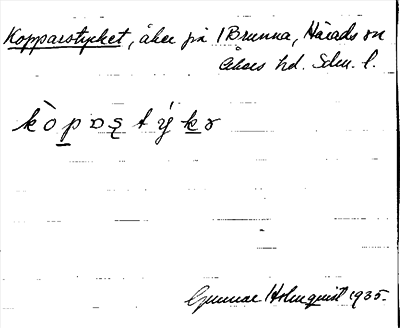 Kopparstycket, åker på 1 Brunna, Härads sn
Åkers hd. Sdm. l.
kòpas̨týkə
Gunnar Holmquist 1935.